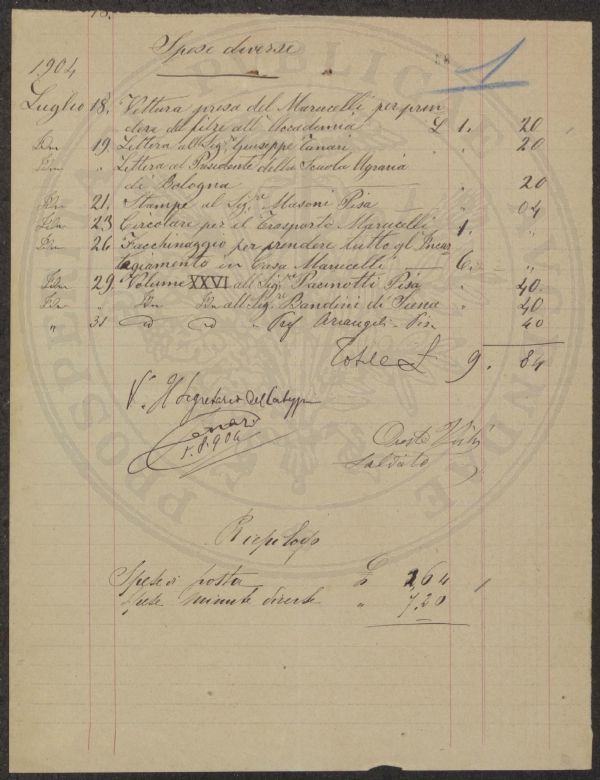 18.
Spese diverse
1
1904
Luglio 18. Vettura presa del Marucelli per pren
dere da pilze all'Accademia £ 1. 20
Do 19. Lettera al Sig. Giuseppe Canari " 20
Do " Lettera al Presidente della Scuola Agraria
di Bologna " 20
Do 21. Stampe al Sig.r Masoni Pisa " 04
Do 23 Circolare per il Trasporto Marucelli 1. "
Do 26 Facchinaggio per prendere tutto gl'Incar
tagiamento in Casa Marucelli 6. "
Do 29. Volume XXVI all Sig.r Pacinotti Pisa " 40
Do " Do Do all Sig.r Bandini di Siena " 40
" 31 id id " Prof Arcangeli - Pisa 40
Totale £ 9. 84
Vo Il Segretario del
Canari
1.8.904
Oreste
Saldato
Riepilogo
Spese di posta £ 2,64
Spese minute diverse " 7.20
PROSPERITATI PUBLICAE AUGENDAE